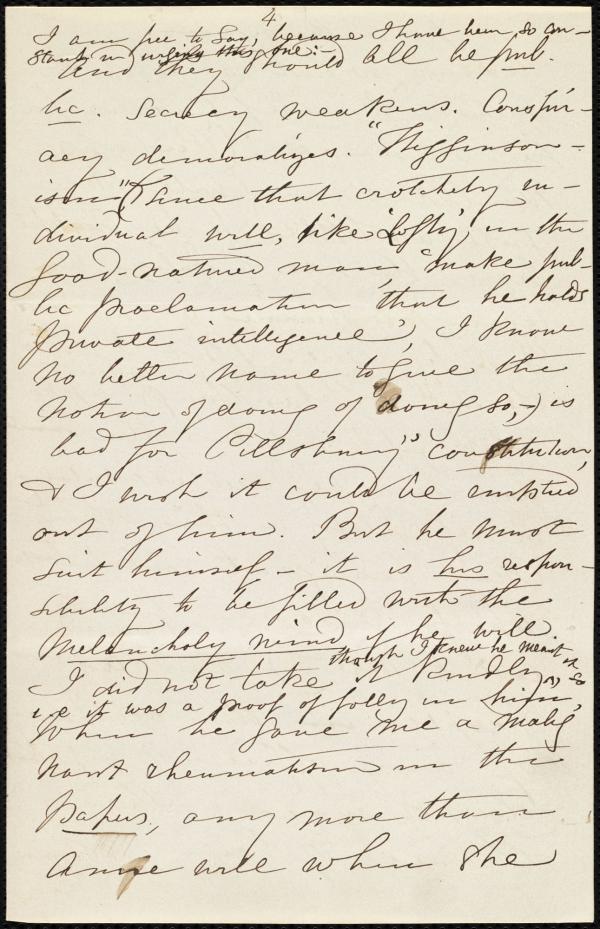 4
I am free to say, because I have been so con-
stantly in urging this one:-
And they should all be pub-
lic. Secrecy weakens. Conspir-
acy demoralizes. "Higginson-
ism" (since that crotchety in-
dividual will, like 'Lofty' in the
Good-natured man, 'make pub-
lic proclamation that he holds
private intelligence', I know
no better name to give the
notion of doing of doing so,-) is
bad for Pillsbury's constitution,
& I wish it could be emptied
out of him. But he must
suit himself - it is his respon-
sibility to be filled with the
Melancholy wind if he will.
though I knew he meant it so
I did not take it kindly,
i.e it was a proof of folly in him,
When he gave me a malig
nant rheumatism in the
papers, any more than
Anne will when she